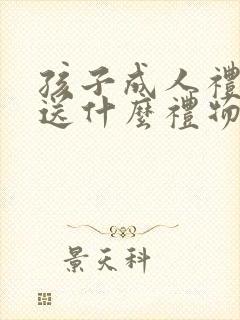 孩子成人禮
送什麼禮物
景天科